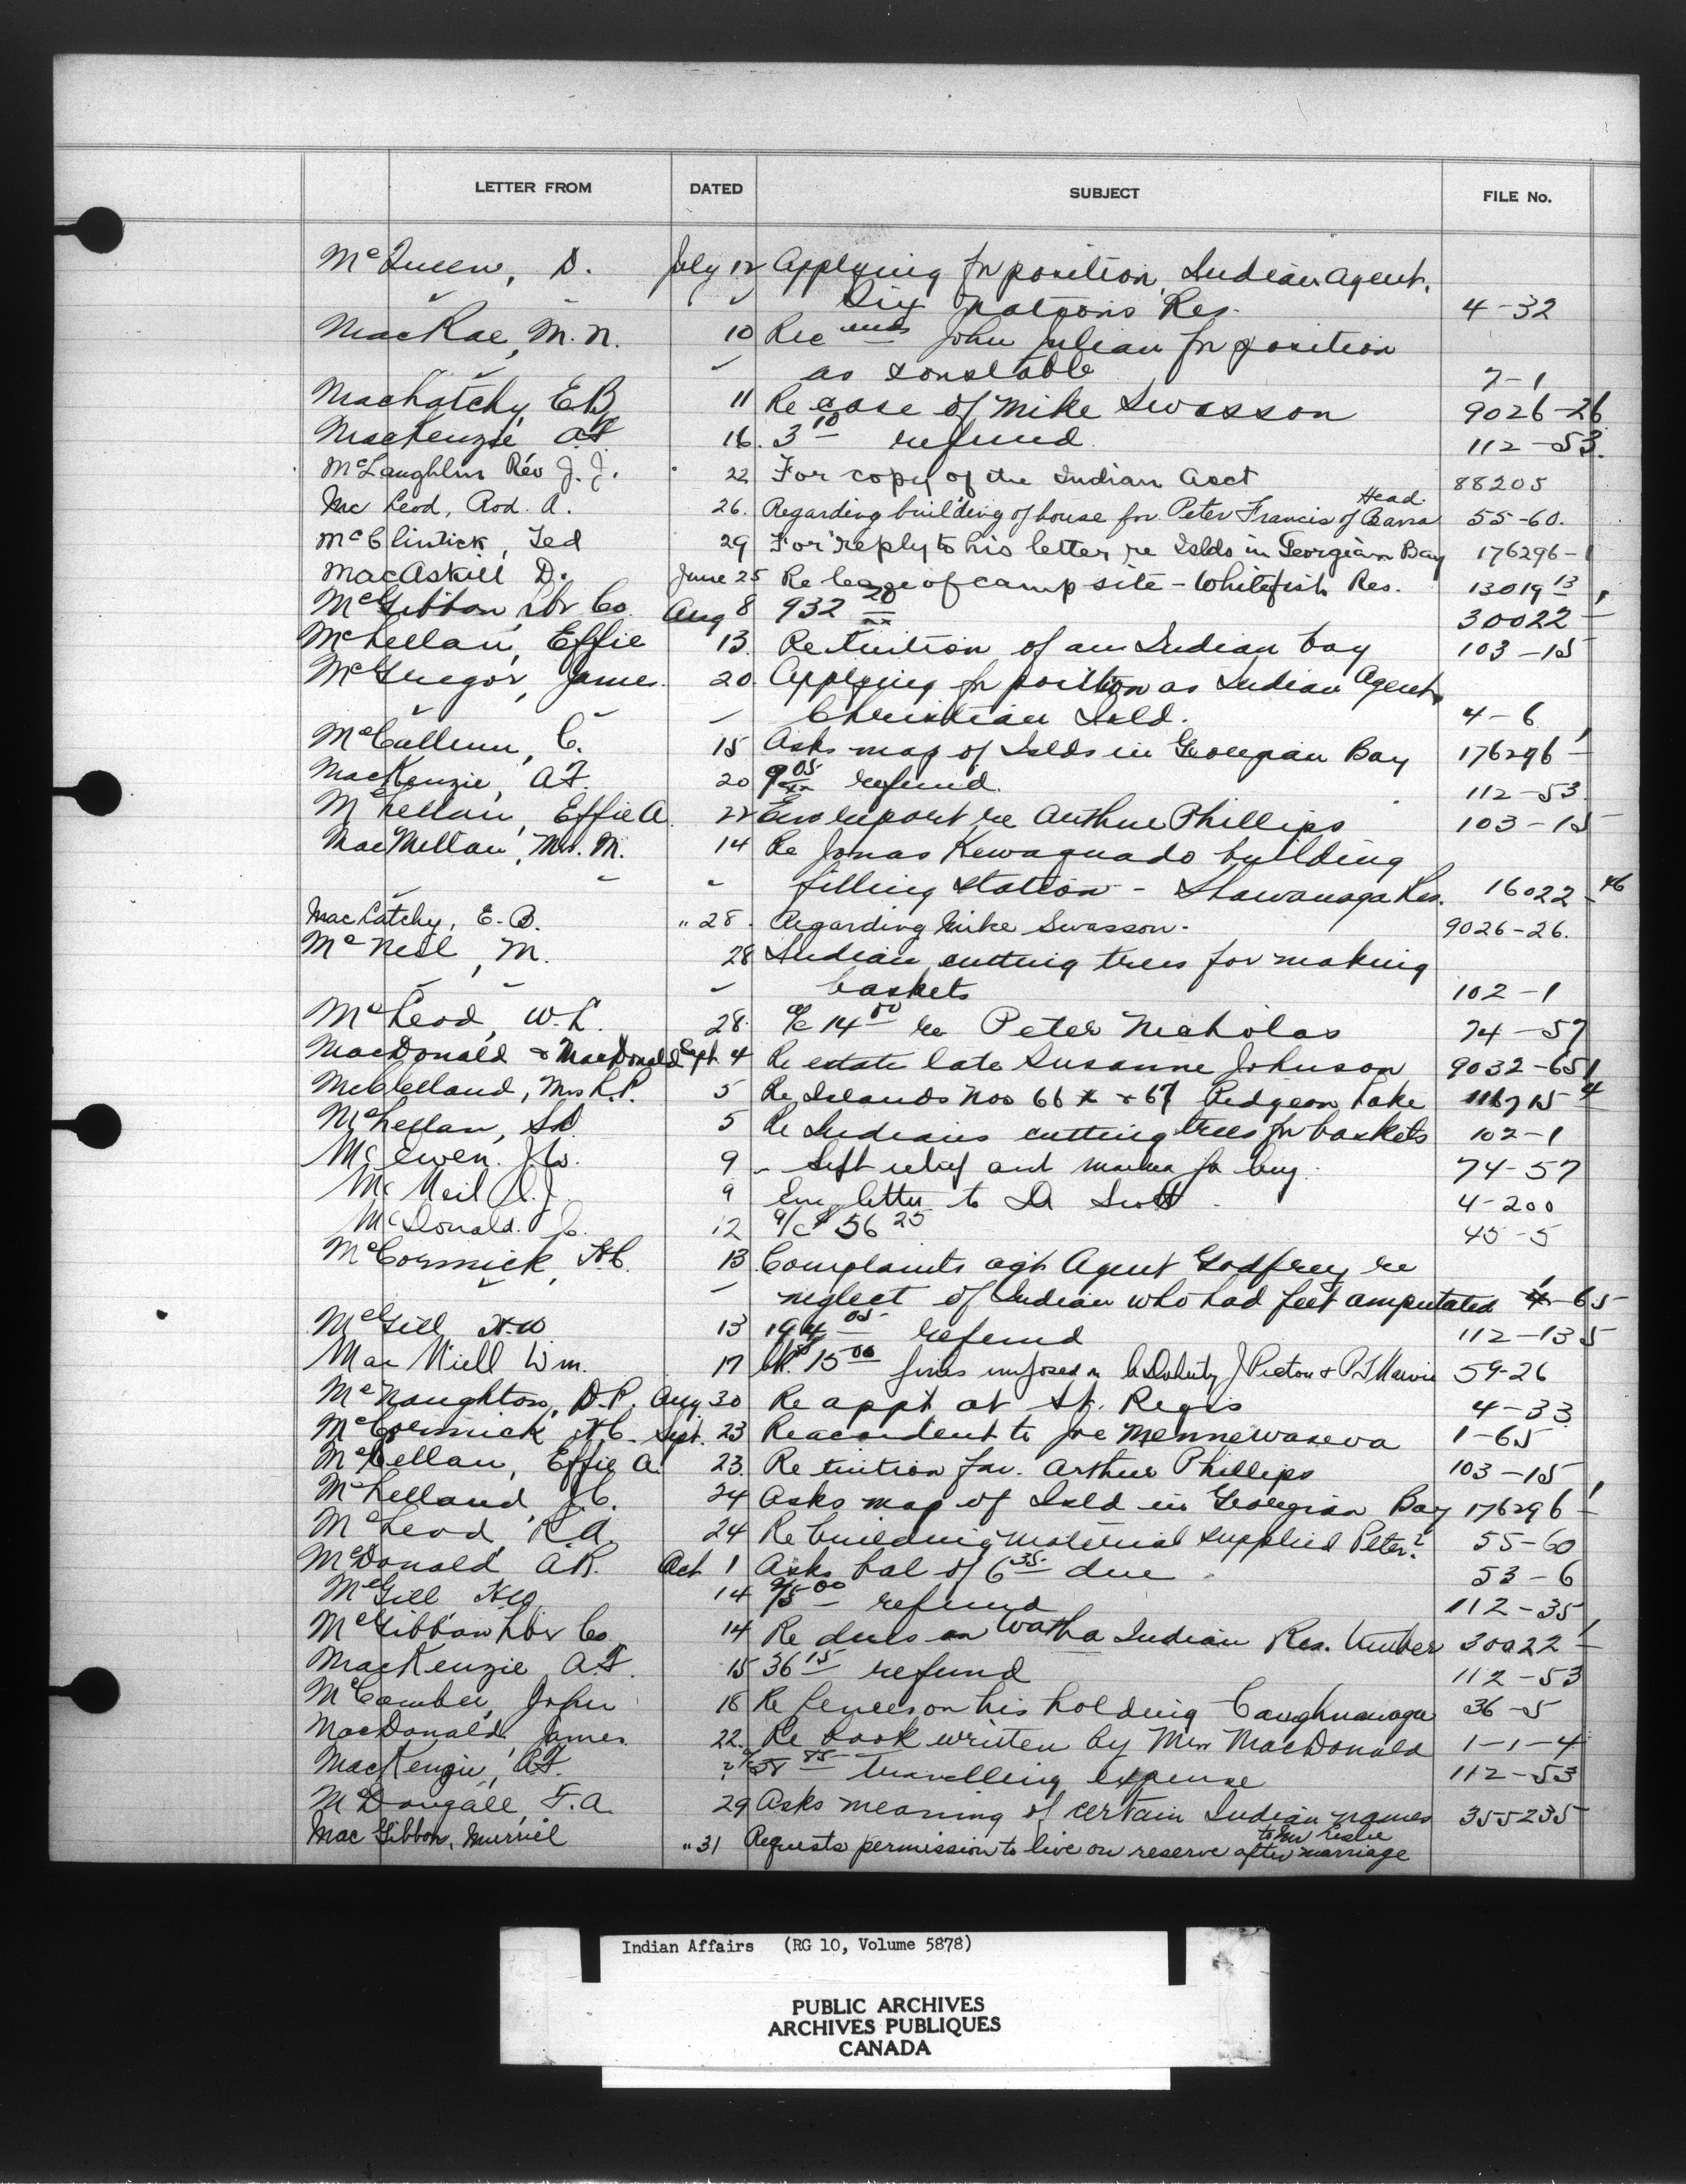 LETTER FROM DATED SUBJECT FILE No.
McQueen, D. July 12 Applying for position, Indian Agent,
" " " Six Nations Res. 4-32
MacRae, M.N. 10 Recmds John Julian for position
" " as Constable 7-1
MacLatchy E.B. 11 Re case of Mike Swasson 9026-26
MacKenzie A.F. 16. 3 10 refund 112-53.
McLaughlin Rev J.J. 22 For copy of the Indian Act 88205
Mac Leod, Rod. A. 26. Regarding building of house for Peter Francis of Head 55-60.
McClintick, Ted 29 For reply to his letter re Islds in Georgian Bay 176296-1
MacAskill D. June 25 Re lease of camp site - Whitefish Res. 13019 13
McGibbon Lbr Co. Aug 8 932 20 30022-1
McLellan, Effie 13. Re tuition of an Indian boy 103-15
McGregor, James. 20 Applying for position as Indian Agent,
" " " Christian Isld. 4-6
McCallum, C. 15 Asks map of Islds in Georgian Bay 176296-1
MacKenzie, A.F. 20 9 05 refund. 112-53
McLellan, Effie A. 22 Enc report re Arthur Phillips 103-15
MacMillan, Mrs. M. 14 Re Jonas Kewaquado building
" " " filling station - Shawanaga Res. 16022-46
MacLatchy, E.B. " 28. Regarding Mike Swasson. 9026-26.
McNeil, M. 28 Indian cutting trees for making
" " " baskets 102-1
McLeod, W.L. 28. a/c 14 00 re Peter Nicholas 74-57
MacDonald & MacDonald Sept. 4 Re estate late Susanne Johnson 9032-651
McClelland, Mrs L.P. 5 Re Islands Nos 66 & 67 Pidgeon Lake 116715 4
McLellan, 5 Re Indians cutting trees for baskets 102-1
McEwen. J.W. 9 - relief and 74-57
McNeil 9 Enc letter to Dr Scott. 4-200
McDonald. J. 12 a/c $56 25 45-5
McCormick, H.C. 13 Complaints agst Agent Godfrey re
" " neglect of Indian who had feet amputated 1-65
McGill H.W 13 194 05 refund 112-135
Mac Niell Wm. 17 15 00 fines imposed on 59-26
McNaughton, D.P. Aug. 30 Re appt at St. Regis 4-33
McCormick H.C. Sept. 23 Re accident to Joe Mennewasewa 1-65
McLellan, Effie A. 23. Re tuition for. Arthur Phillips 103-15
McLelland, J.C. 24 Asks map of Isld in Georgian Bay 176296-1
McLeod, R.A. 24 Re building material supplied Peter? 55-60
McDonald A.R. Oct 1 Asks bal of 6 35 due 53-6
McGill H.W. 14 95 00 refund 112-35
McGibbon Lbr Co 14 Re dues on Watha Indian Res. timber 30022-1
MacKenzie A.F. 15 36 15 refund 112-53
McComber, John 18 Re fences on his holding Caughnawaga 36-5
MacDonald James 22. Re book written by Miss MacDonald 1-1-4
MacKenzie, A.F. 58 85 travelling expense 112-53
McDougall, F.A. 29 Asks meaning of certain Indian names 355235
Mac Gibbon, Murriel " 31 Requests permission to live on reserve after marriage to Mr Leslie
Indian Affairs (RG 10, Volume 5878)
PUBLIC ARCHIVES
ARCHIVES PUBLIQUES
CANADA